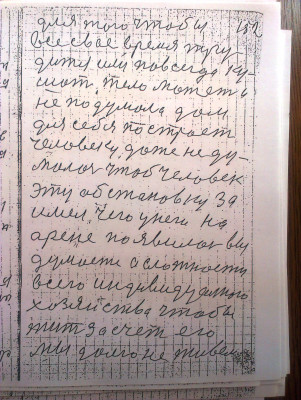 для того чтобы 152
все свое время тру
дится или навсегда ку-
шат, тело может
не подумала дом
для себя построет
человеку, даже не ду-
малох чтоб человек
эту обстановку за
имел, чего у него на
арене появилох вы
думаете о сложности
всего индивидуалного
хозяйства чтобы
жит за счет его
мы долго не живем